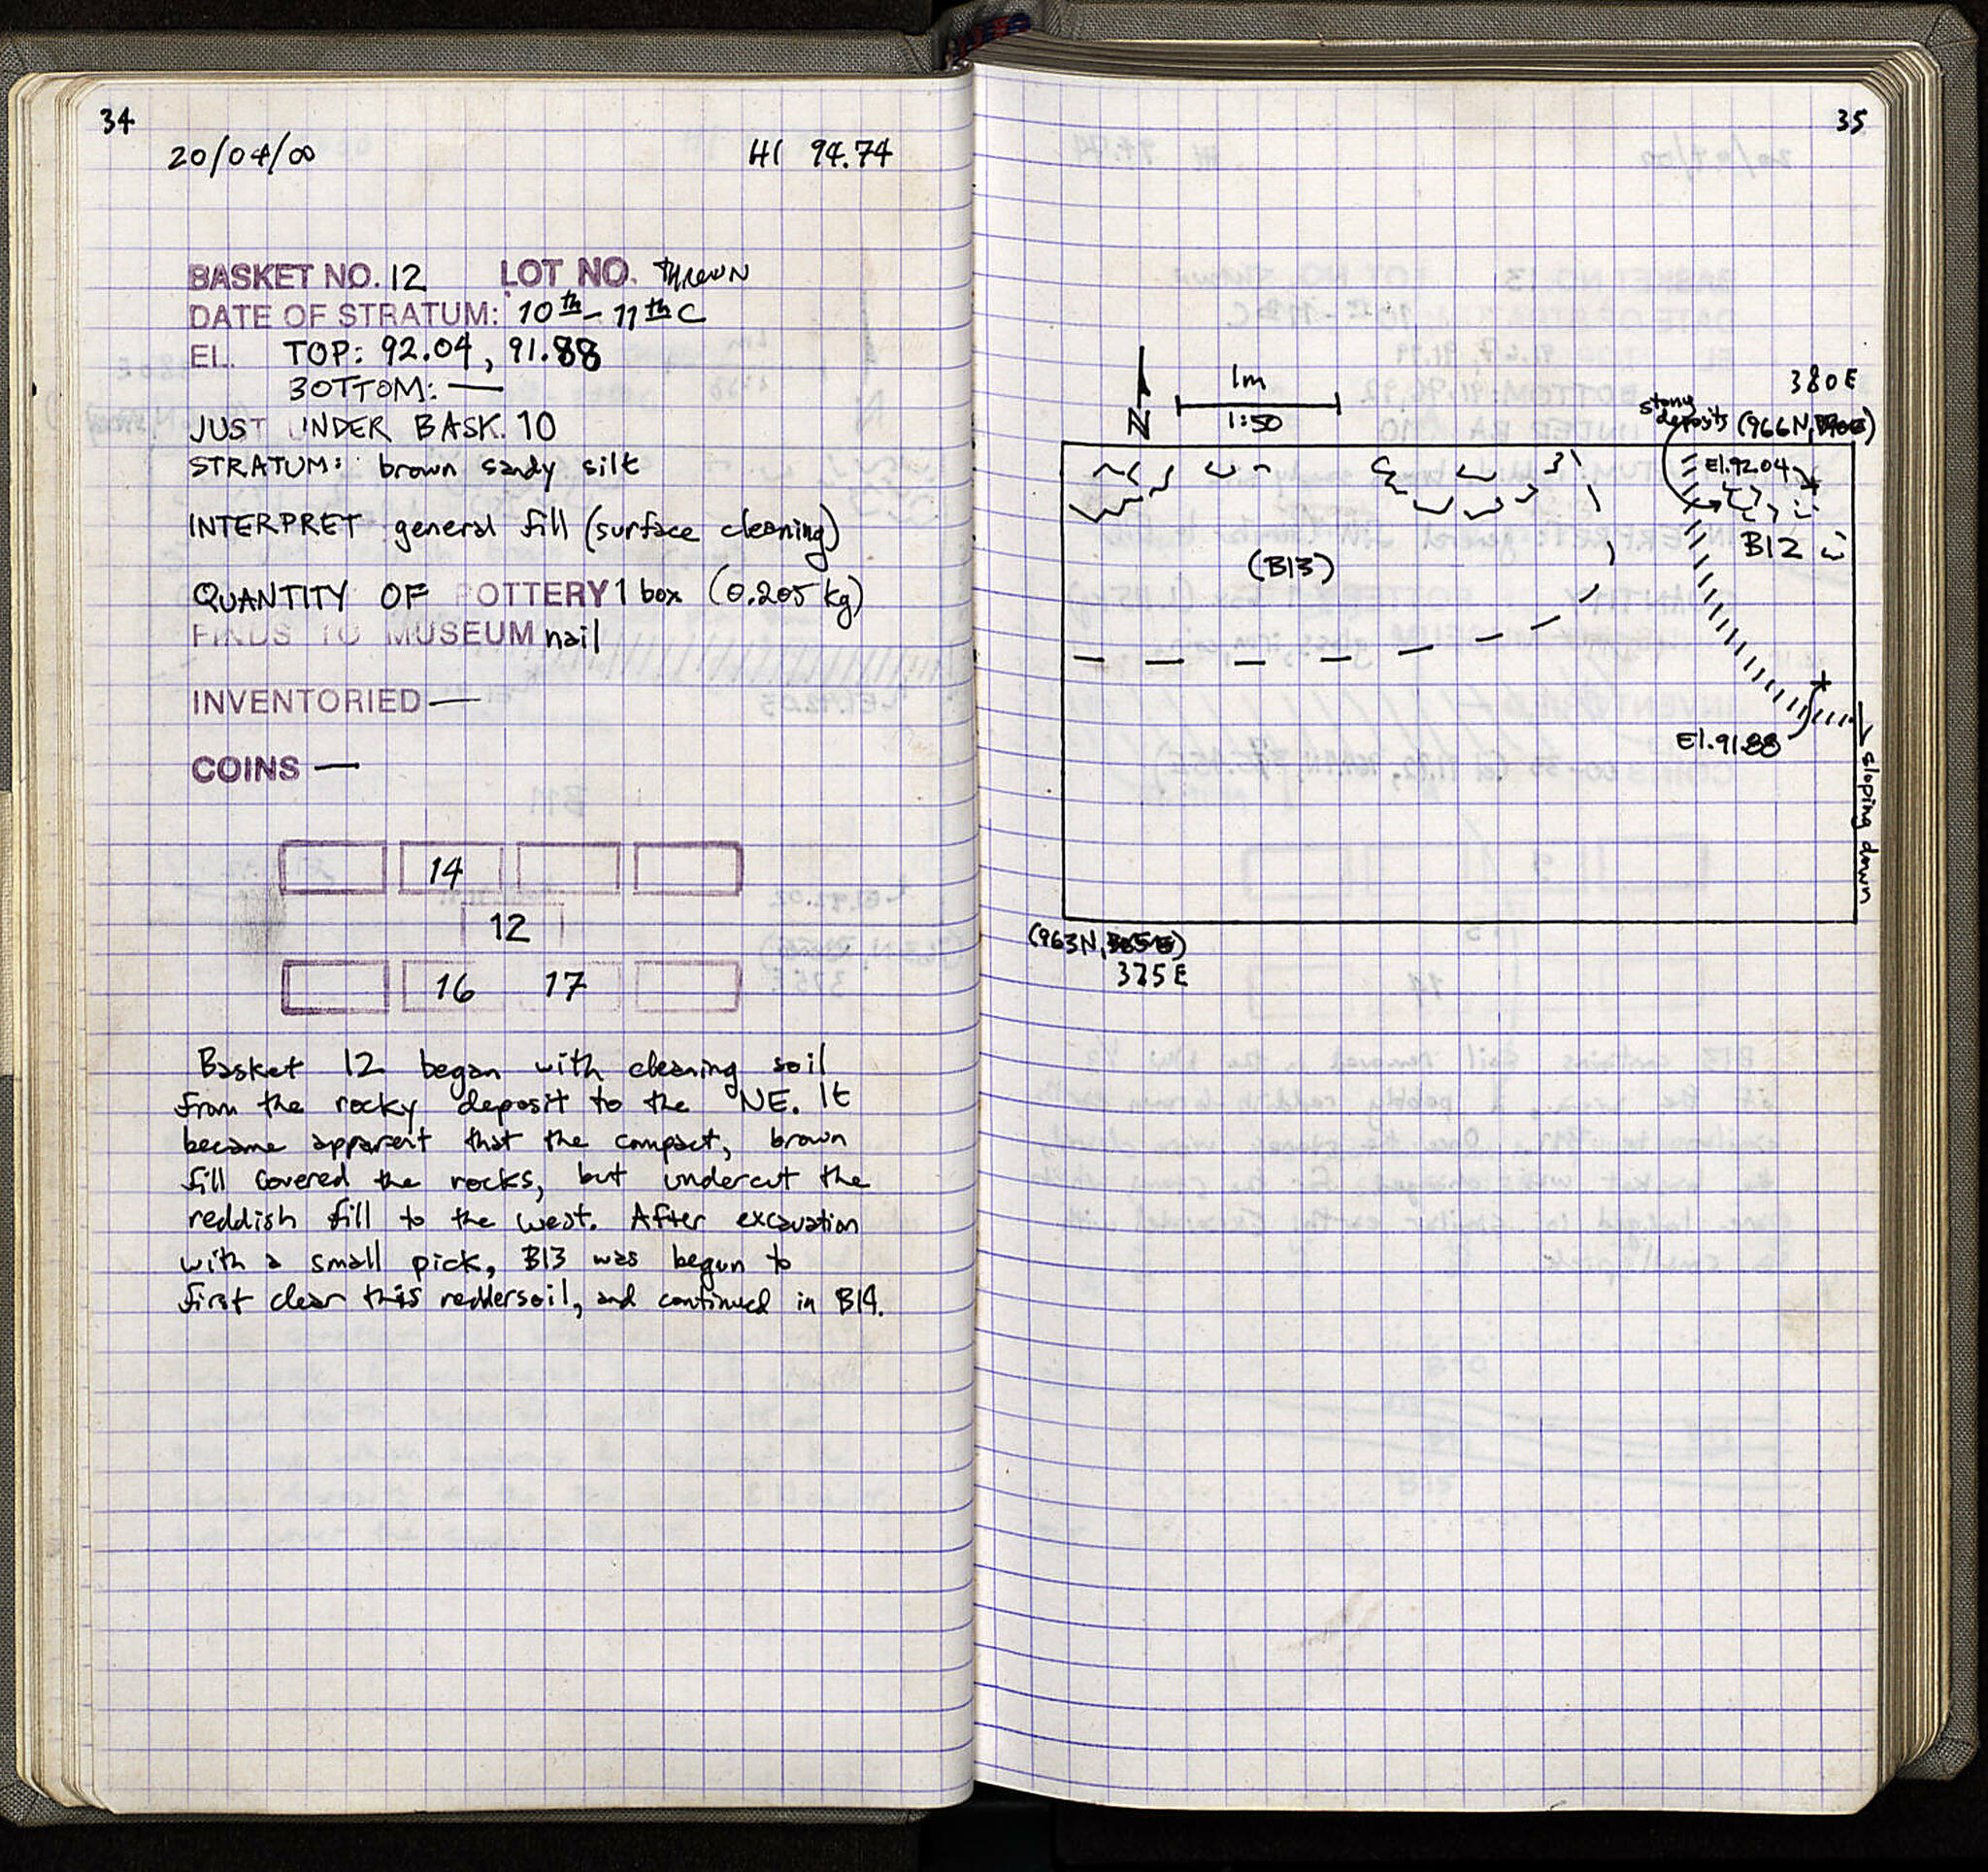 34
20/04/00 HI 94.74
BASKET NO. 12 LOT NO. thrown
DATE OF STRATUM: 10th - 11th C
EL. TOP: 92.04, 91.88
BOTTOM: —
JUST UNDER BASK. 10
STRATUM: brown sandy silt
INTERPRET general fill (surface cleaning)
QUANTITY OF POTTERY 1 box (0.205 kg)
FINDS TO MUSEUM nail
INVENTORIED —
COINS —
14
12
16 17
Basket 12 began with cleaning soil
from the rocky deposit to the NE. It
became apparent that the compact, brown
fill covered the rocks, but undercut the
reddish fill to the west. After excavation
with a small pick, B13 was begun to
first clear this redder soil, and continued in B14.
35
1m
N 1:50
380E
stony
deposits (966N, )
El. 92.04
B12
(B13)
El. 91.88
sloping down
(963N, )
375E